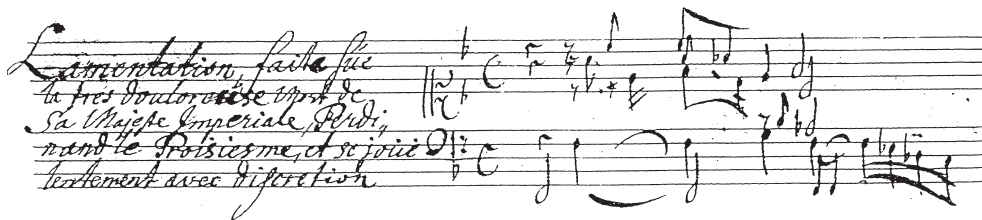 Lamentation, faite sur
la tres douloreuse mort de
Sa Majeste Imperiale, Ferdi,,
nand le Troisiesme, et se joüe
lentement avec discretion